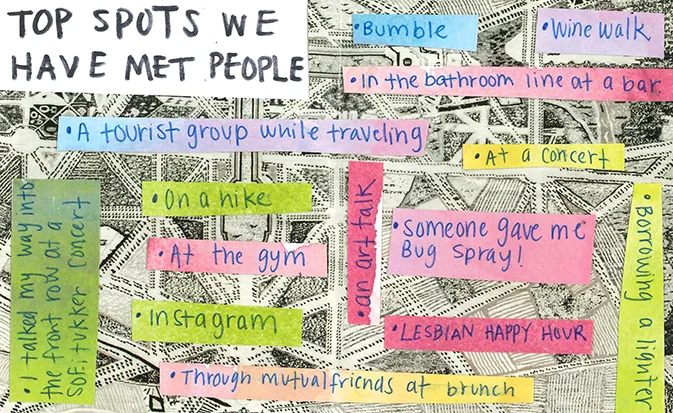 TOP SPOTS WE
HAVE MET PEOPLE
• Bumble
• Wine walk
• In the bathroom line at a bar.
• A tourist group while traveling
• At a concert
• On a hike
• At the gym
• Instagram
• an art talk
• someone gave me
Bug Spray!
• LESBIAN HAPPY HOUR
• Through mutual friends at brunch
• I talked my way into
the front row at a
Sofi tukker concert
• Borrowing a lighter